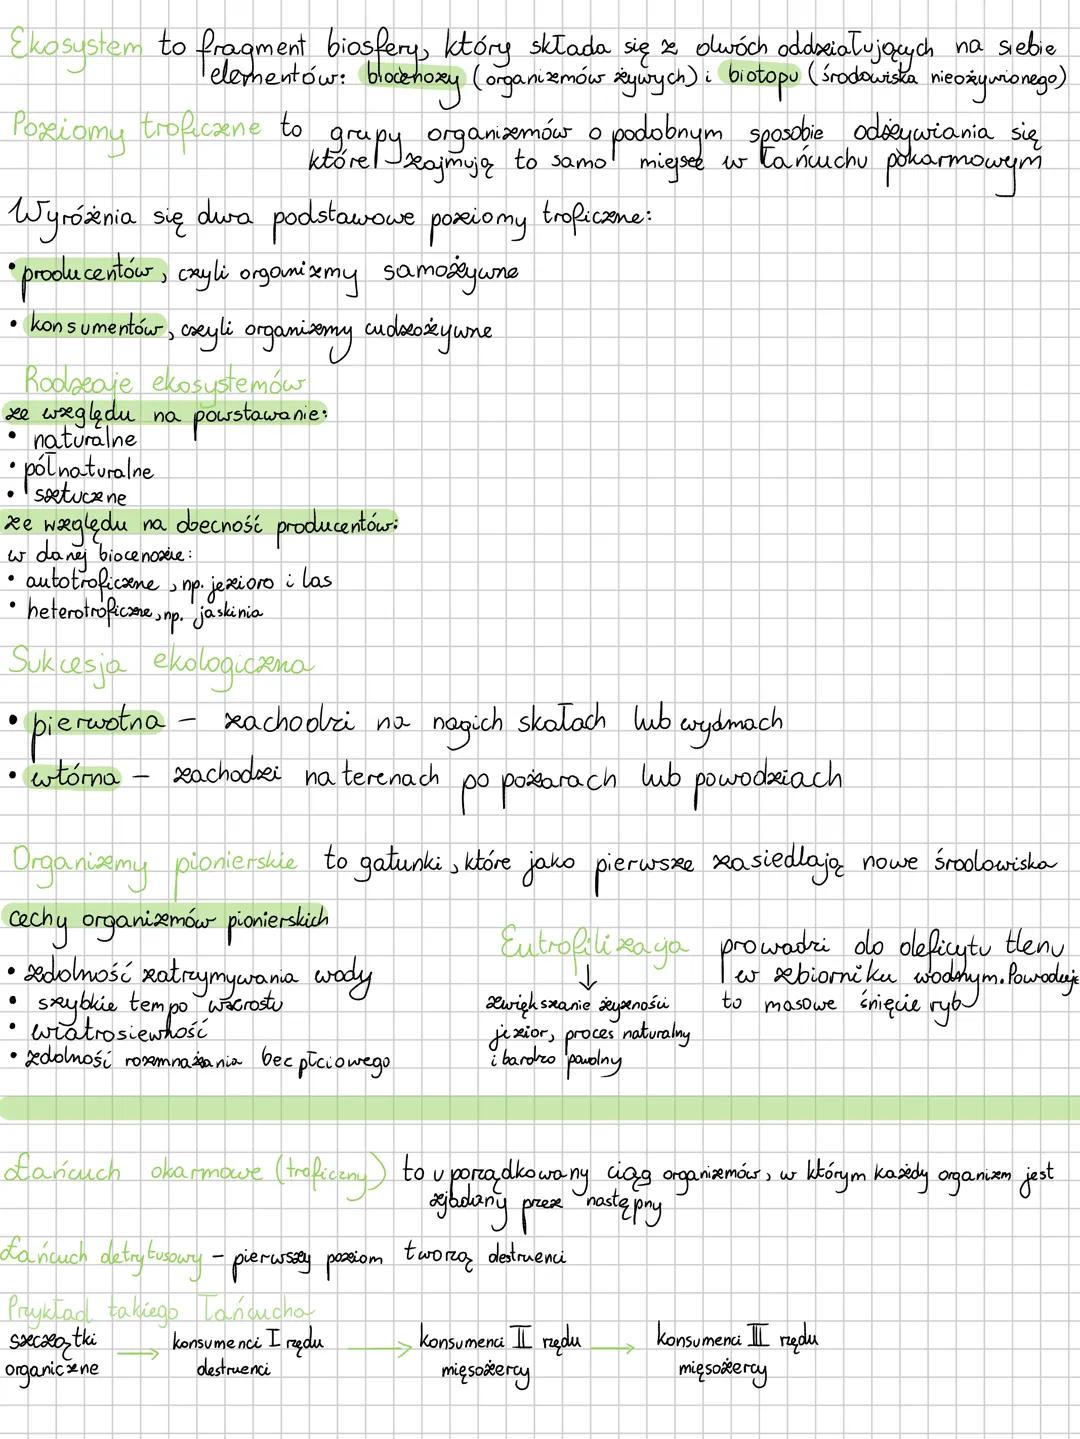 Ekosystem to fragment biosfery, który składa się z dwóch oddziałujących na siebie
elementów: biocenozy (organizmów żywych) i biotopu (środowiska nieożywionego)
Poziomy troficzne to grupy organizmów o podobnym sposobie odżywiania się
które zajmują to samo miejsce w łańcuchu pokarmowym
Wyróżnia się dwa podstawowe poziomy troficzne:
• producentów, czyli organizmy samożywne
• konsumentów, czyli organizmy cudzożywne
Rodzaje ekosystemów
ze względu na powstawanie:
• naturalne
• półnaturalne
• sztuczne
ze względu na obecność producentów:
w danej biocenozie:
• autotroficzne, np. jezioro i las
• heterotroficzne, np. jaskinia
Sukcesja ekologiczna
• pierwotna – zachodzi na nagich skałach lub wydmach
• wtórna – zachodzi na terenach po pożarach lub powodziach
Organizmy pionierskie to gatunki, które jako pierwsze zasiedlają nowe środowiska
cechy organizmów pionierskich
• zdolność zatrzymywania wody
• szybkie tempo wzrostu
• wiatrosiewność
• zdolność rozmnażania bec płciowego
Eutrofilizacja prowadzi do deficytu tlenu
w zbiorniku wodnym. Powoduje
to masowe śnięcie ryb
↓
zwiększanie żyzności
jezior, proces naturalny
i bardzo powolny
Łańcuch okarmowe (troficzny) to uporządkowany ciąg organizmów, w którym każdy organizm jest
zjadany przez następny
Łańcuch detrytusowy – pierwszy poziom tworzą destruenci
Przykład takiego łańcucha
szczątki → konsumenci I rzędu → konsumenci II rzędu → konsumenci III rzędu
organiczne destruenci mięsożercy mięsożercy